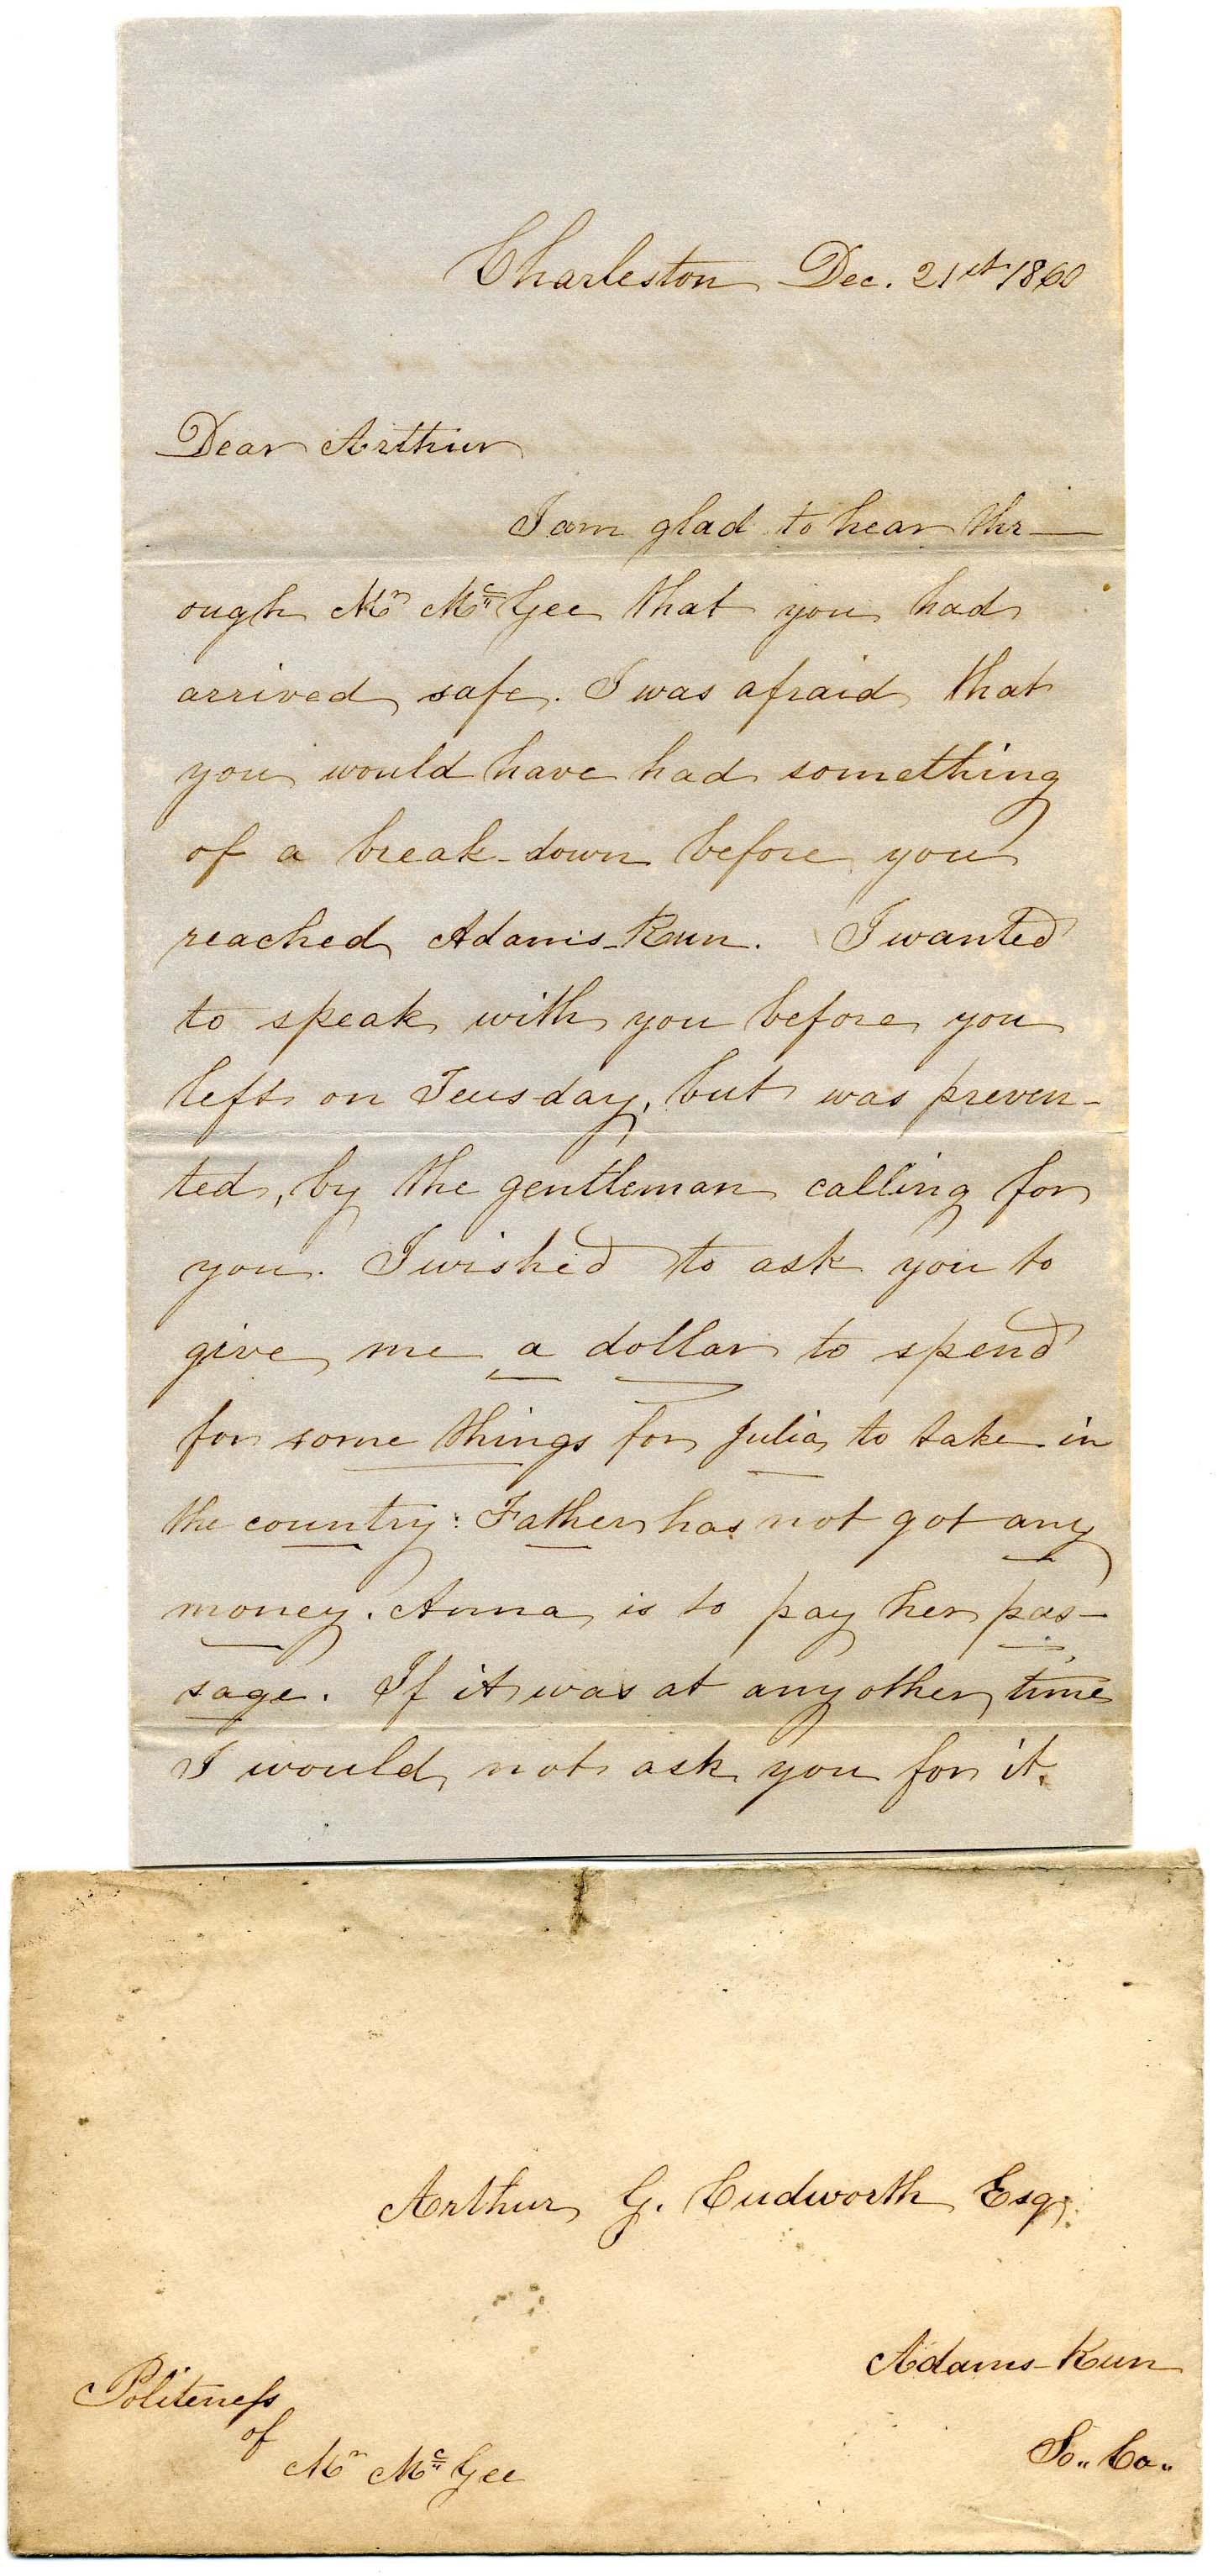 Charleston Dec. 21st 1860
Dear Arthur
I am glad to hear thr—
ough Mr McGee that you had
arrived safe. I was afraid that
you would have had something
of a break-down before you
reached Adams-Run. I wanted
to speak with you before you
left on Teusday, but was preven-
ted, by the gentleman calling for
you. I wished to ask you to
give me a dollar to spend
for some things for Julia, to take in
the country: Father has not got any
money. Anna is to pay her pas-
sage. If it was at any other time
I would not ask you for it.
Arthur G. Cudworth Esq.
Adams-Run
So. Ca.
Politeness
of
Mr McGee